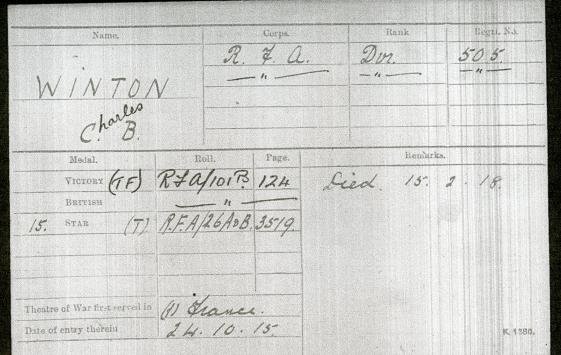 Name. Corps. Rank Regtl. No.
R. F. A. Dvr. 505.
" " "
WINTON
Charles
C. B.
Medal. Roll. Page. Remarks.
VICTORY (TF) RFA/101B. 124 Died. 15. 2. 18.
BRITISH "
15. STAR (T) R.F.A/26A&B. 3519.
Theatre of War first served in (1) France.
Date of entry therein 24. 10. 15.
K. 1380.